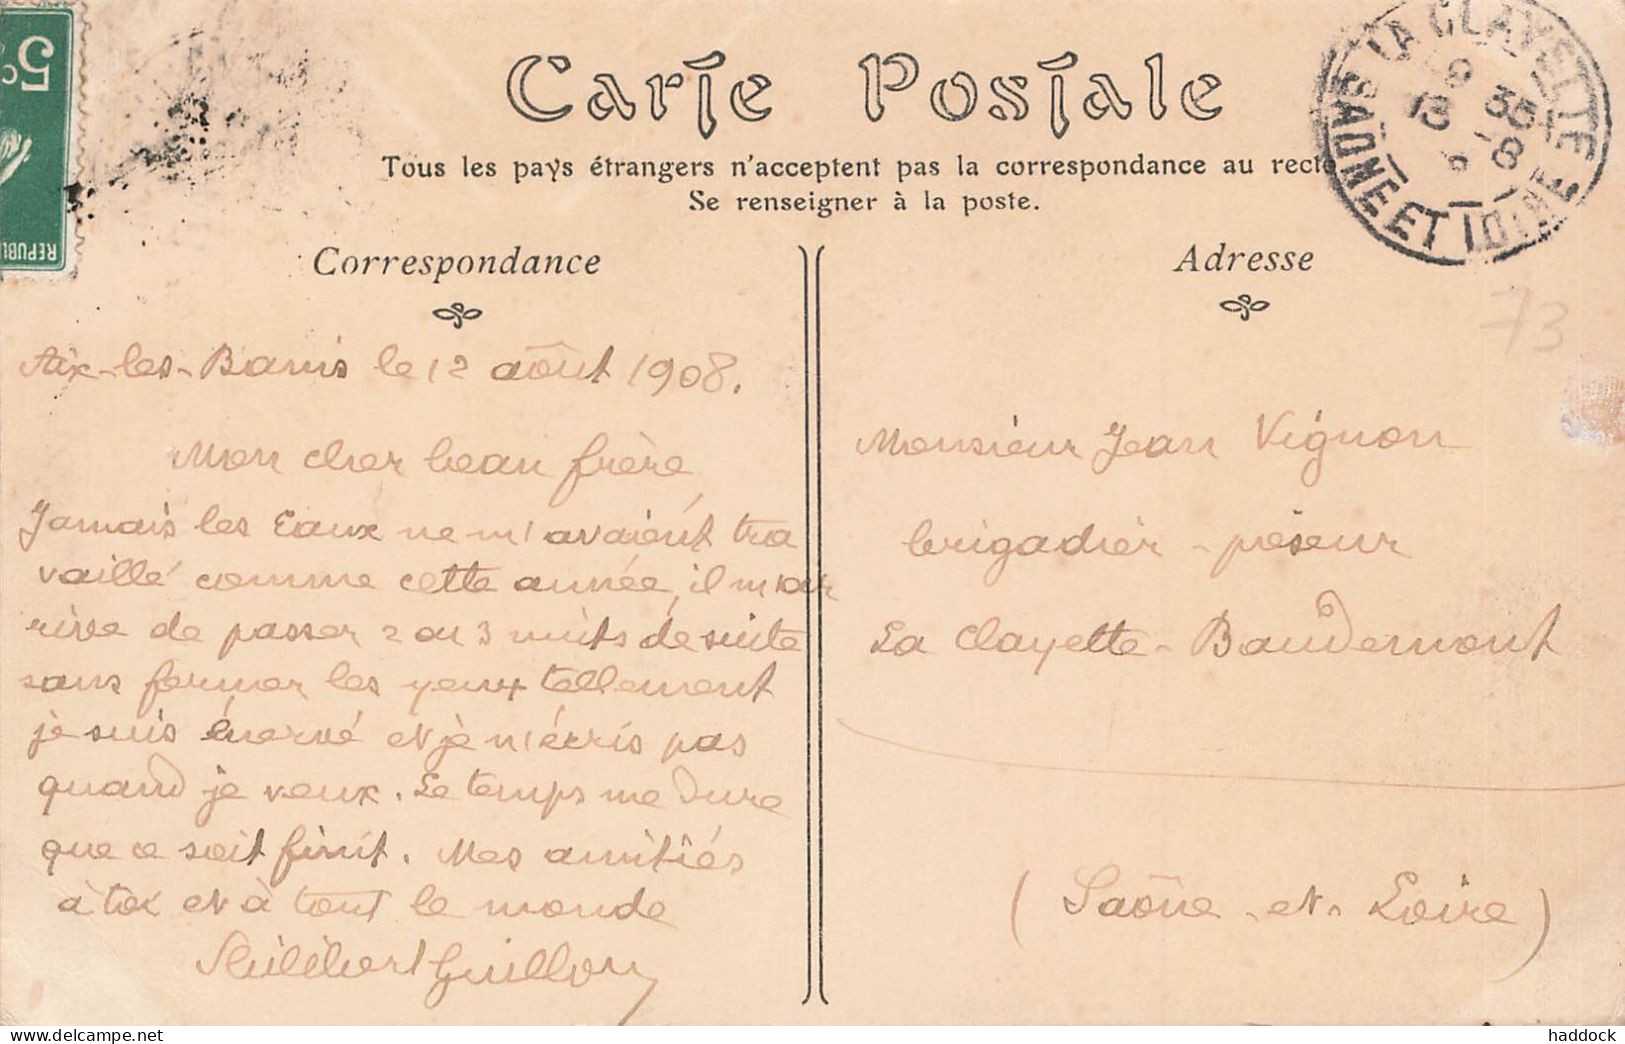 5c
REPUBL
Carte Postale
Tous les pays étrangers n'acceptent pas la correspondance au recto
Se renseigner à la poste.
LA CLAYETTE
9 35
13 -8
SAONE ET LOIRE
Correspondance
Aix-les-Bains le 12 août 1908.
Mon cher beau frère
Jamais les Eaux ne m'avaient tra
vaillé comme cette année, il m'ar
rive de passer 2 ou 3 nuits de suite
sans fermer les yeux tellement
je suis énervé et je n'écris pas
quand je veux. Le temps me dure
que ce soit finit. Mes amitiés
à toi et à tout le monde
Philibert Guillon
Adresse
73
Monsieur Jean Vignon
brigadier-poseur
La Clayette-Baudemont
(Saône-et-Loire)
haddock